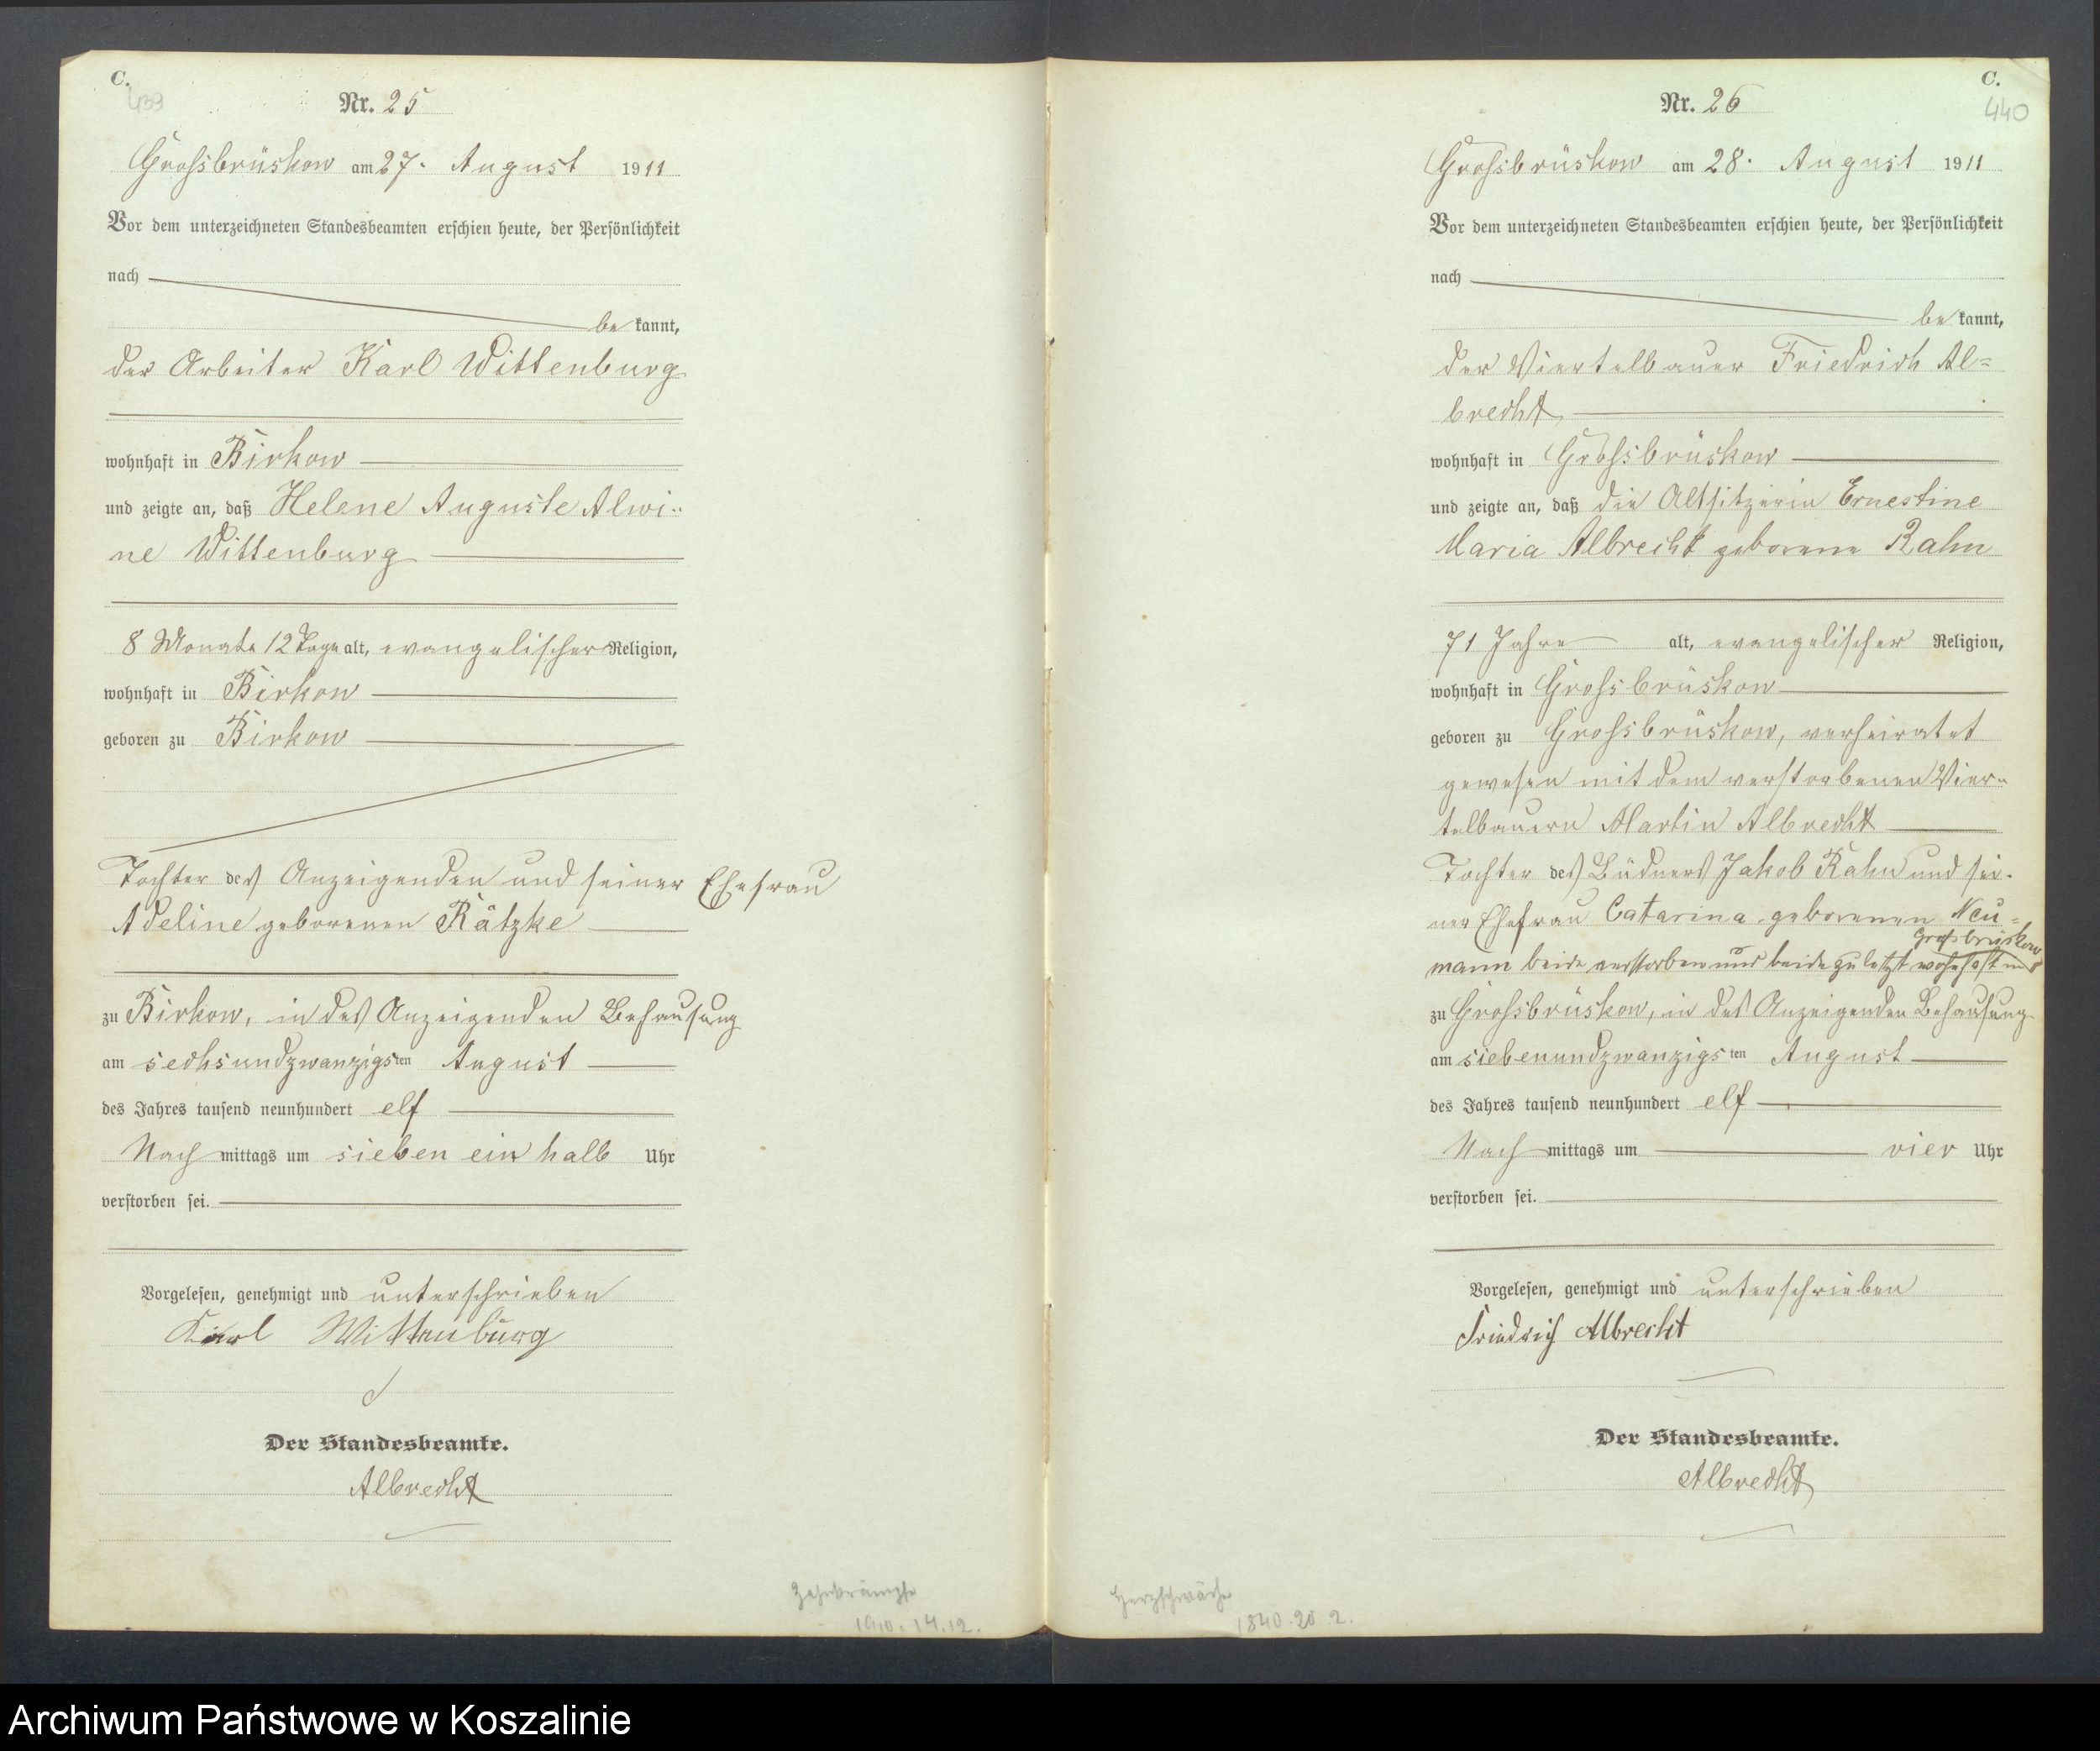 C.
439
Nr. 25
Grossbrüskow am 27. August 1911
Vor dem unterzeichneten Standesbeamten erschien heute, der Persönlichkeit
nach
be kannt,
der Arbeiter Karl Wittenburg
wohnhaft in Birkow
und zeigte an, daß Helene Auguste Alwi-
ne Wittenburg
8 Monate 12 Tage alt, evangelischer Religion,
wohnhaft in Birkow
geboren zu Birkow
Tochter des Anzeigenden und seiner Ehefrau
Adeline geborenen Rätzke
zu Birkow, in des Anzeigenden Behausung
am sechsundzwanzigsten August
des Jahres tausend neunhundert elf
Nach mittags um sieben ein halb Uhr
verstorben sei.
Vorgelesen, genehmigt und unterschrieben
Karl Wittenburg
Der Standesbeamte.
Albrecht
Zahnkrämpfe
1910. 14.12.
C.
440
Nr. 26
Grossbrüskow am 28. August 1911
Vor dem unterzeichneten Standesbeamten erschien heute, der Persönlichkeit
nach
be kannt,
der Viertelbauer Friedrich Al=
brecht
wohnhaft in Grossbrüskow
und zeigte an, daß die Altsitzerin Ernestine
Maria Albrecht geborene Rahn
71 Jahre alt, evangelischer Religion,
wohnhaft in Grossbrüskow
geboren zu Grossbrüskow, verheiratet
gewesen mit dem verstorbenen Vier-
telbauern Martin Albrecht
Tochter des Büdners Jakob Rahn und sei-
ner Ehefrau Catarina geborenen Neu=
Grossbrüskow
mann beide verstorben und beide zuletzt wohnhaft in
zu Grossbrüskow, in des Anzeigenden Behausung
am siebenundzwanzigsten August
des Jahres tausend neunhundert elf
Nach mittags um vier Uhr
verstorben sei.
Vorgelesen, genehmigt und unterschrieben
Friedrich Albrecht
Der Standesbeamte.
Albrecht
Herzschwäche
1840. 20. 2.
Archiwum Państwowe w Koszalinie